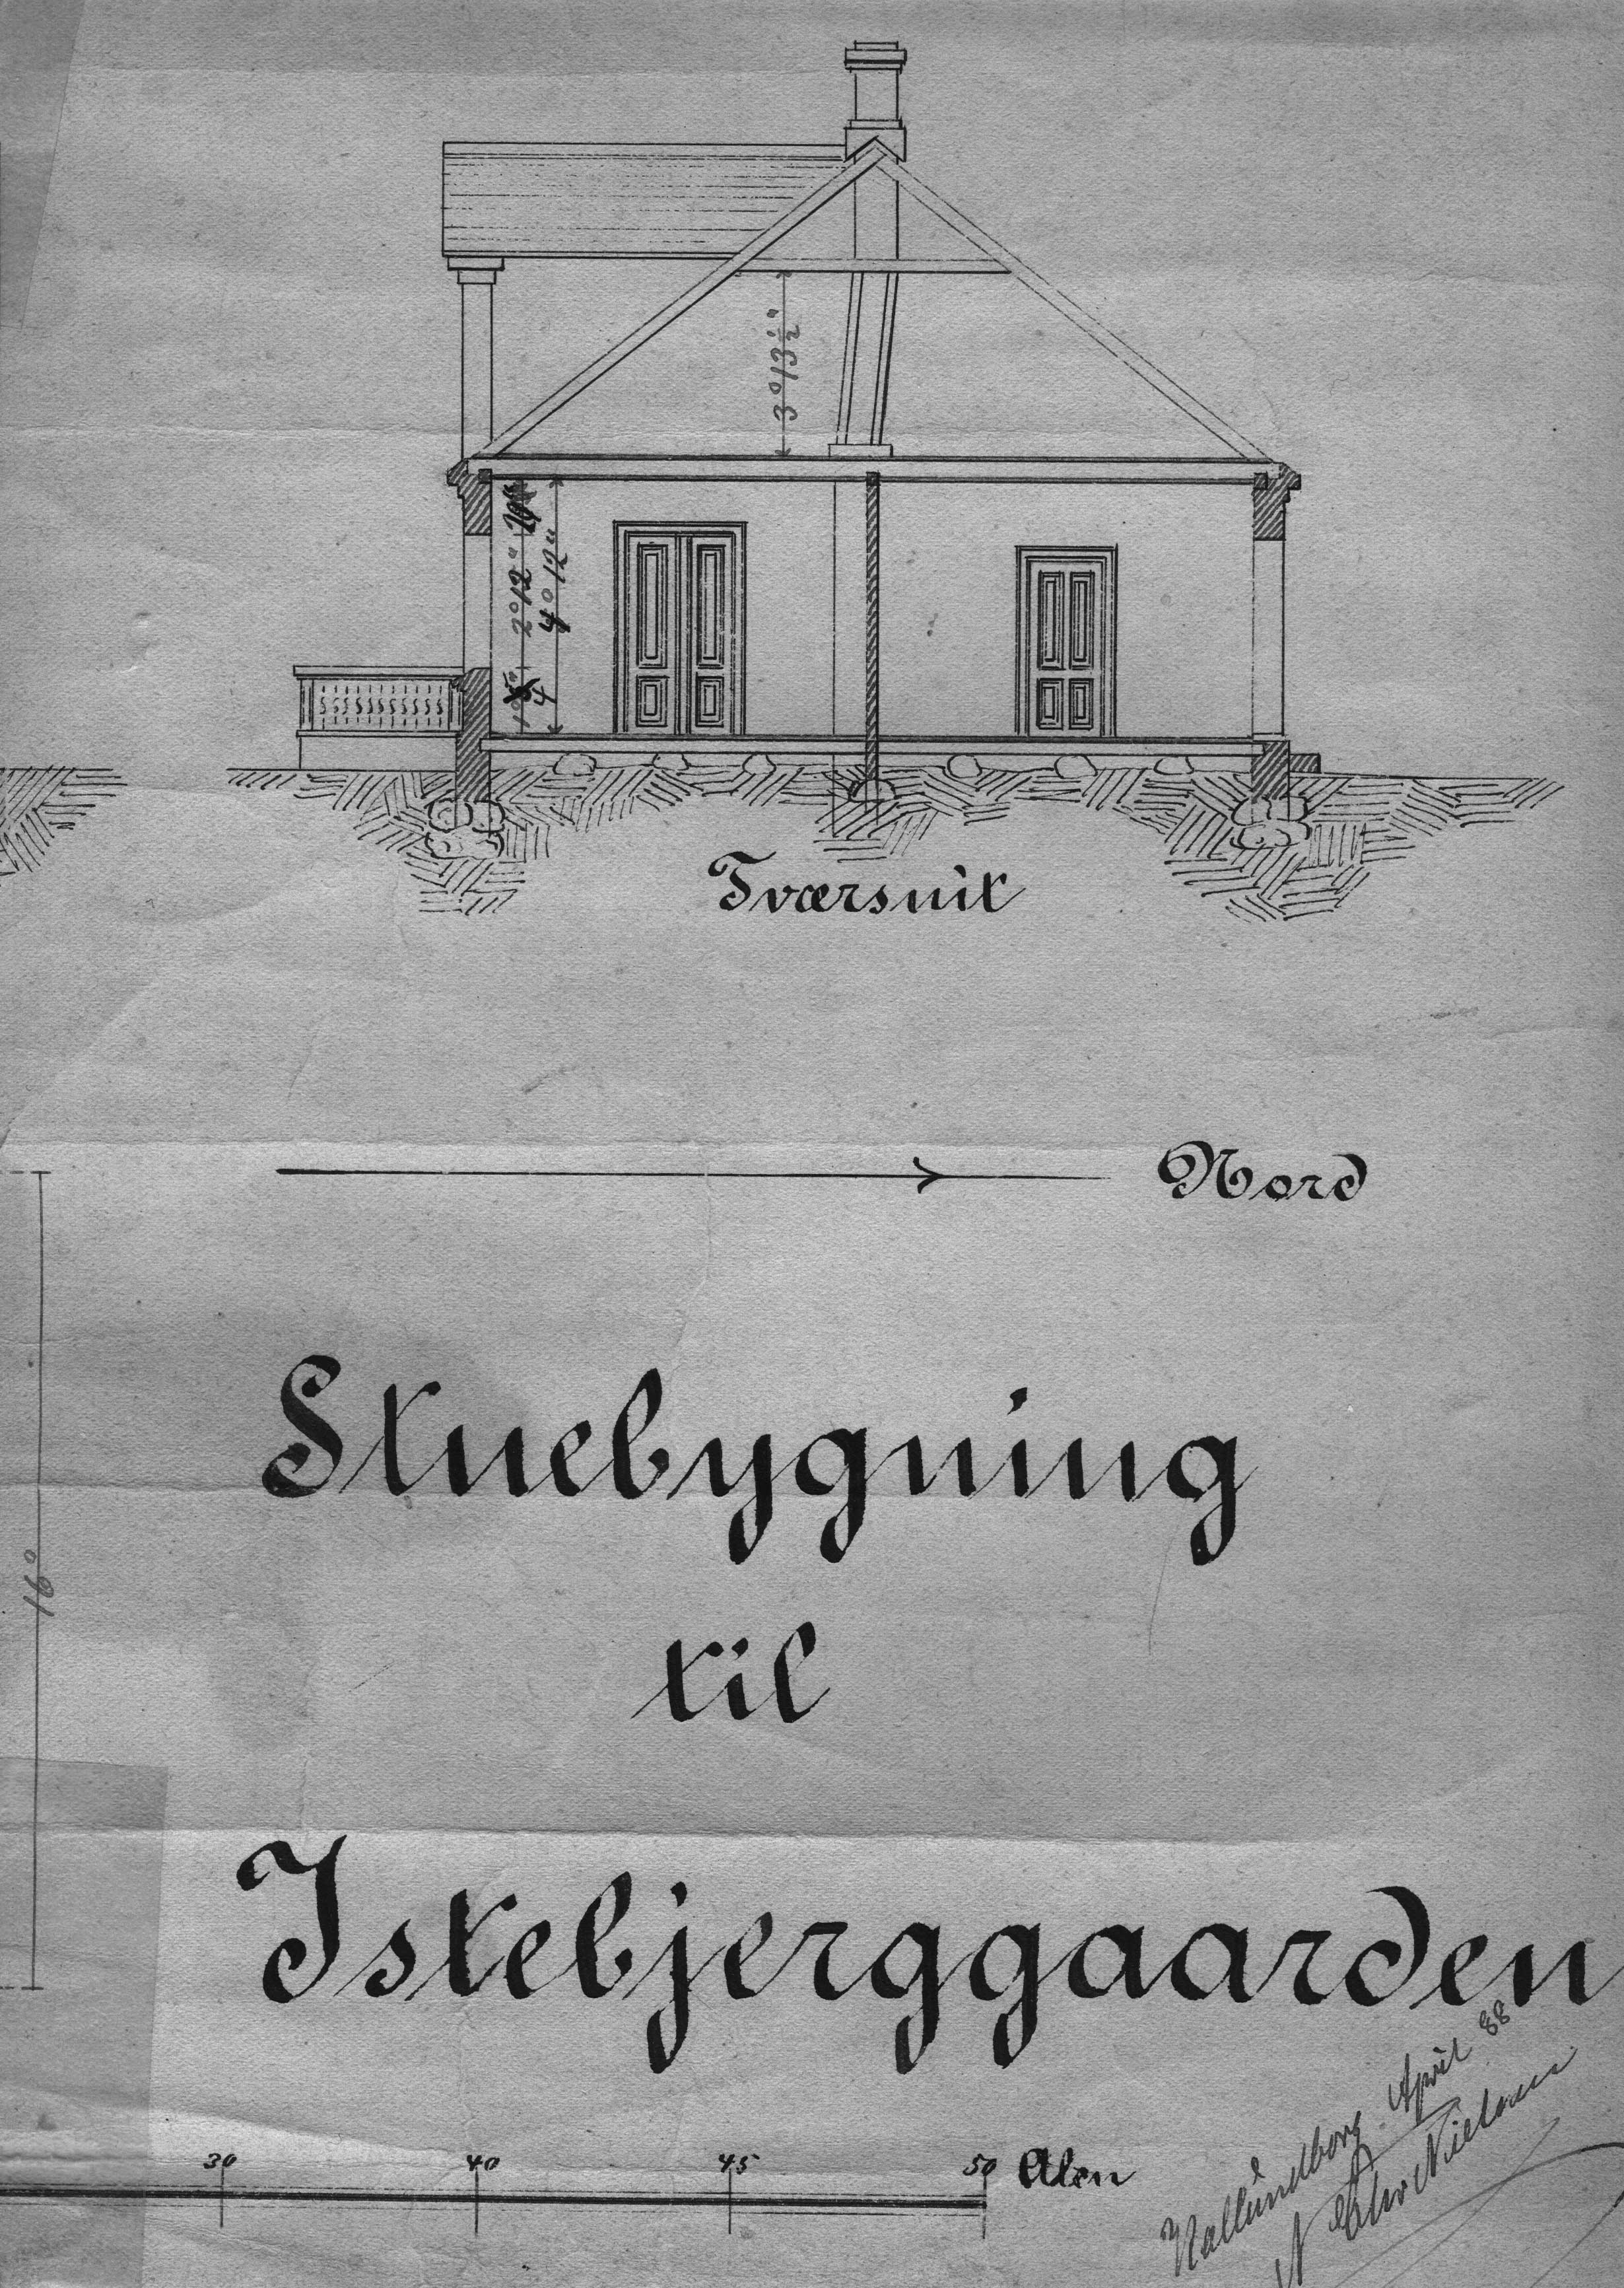 3° 13½"
2° 12"
4° 12"
4
Tværsnit
Nord
Stuebygning
til
Istebjerggaarden
16°
30 40 45 50 Alen
Kallundborg April 88
Chr Nielsen